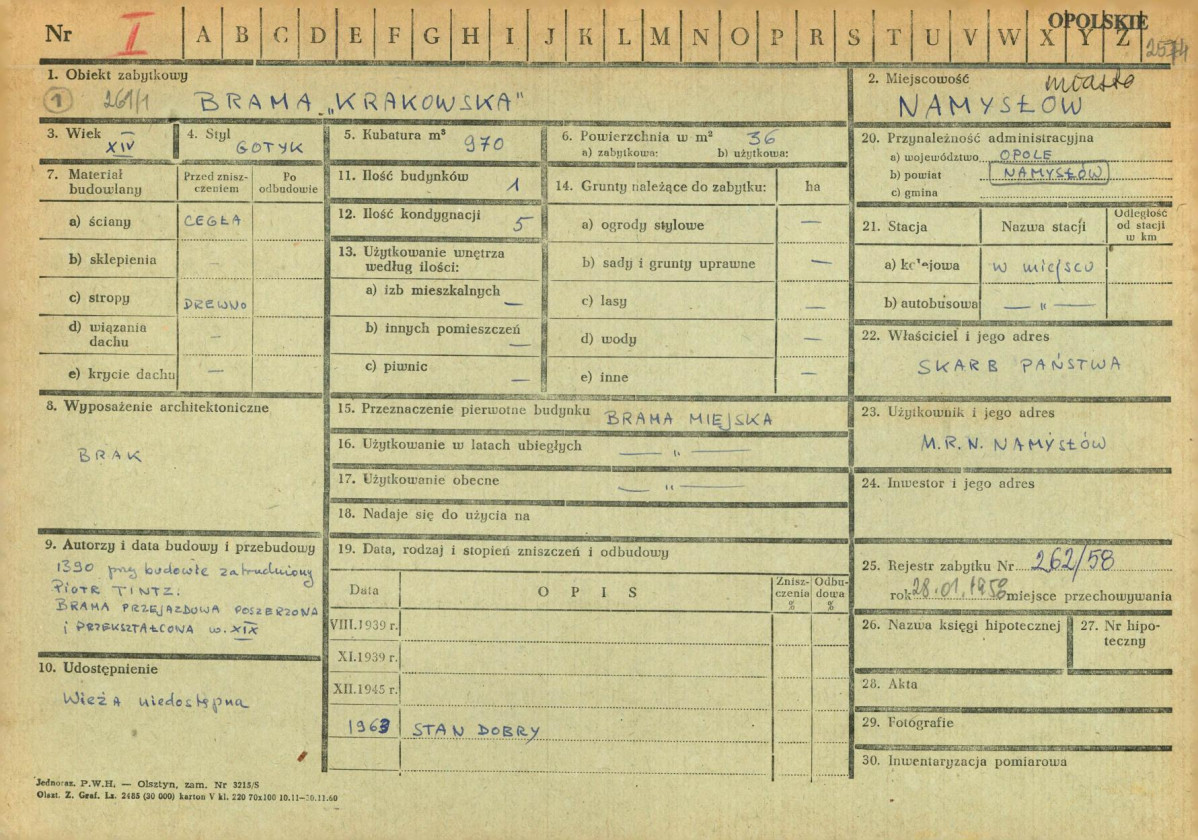 OPOLSKIE
Nr I A B C D E F G H I J K L M N O P R S T U V W X Y Z
2574
1. Obiekt zabytkowy
1 261/1 BRAMA „KRAKOWSKA"
2. Miejscowość miasto
NAMYSŁÓW
3. Wiek
XIV
4. Styl
GOTYK
5. Kubatura m³ 970
6. Powierzchnia w m² 36
a) zabytkowa: b) użytkowa:
20. Przynależność administracyjna
a) województwo OPOLE
b) powiat NAMYSŁÓW
c) gmina
7. Materiał budowlany
Przed zniszczeniem
Po odbudowie
a) ściany CEGŁA
b) sklepienia —
c) stropy DREWNO
d) wiązania dachu —
e) krycie dachu —
11. Ilość budynków 1
12. Ilość kondygnacji 5
13. Użytkowanie wnętrza
według ilości:
a) izb mieszkalnych —
b) innych pomieszczeń —
c) piwnic —
14. Grunty należące do zabytku: ha
a) ogrody stylowe —
b) sady i grunty uprawne —
c) lasy —
d) wody —
e) inne —
21. Stacja Nazwa stacji Odległość od stacji w km
a) kolejowa w miejscu
b) autobusowa — „ —
22. Właściciel i jego adres
SKARB PAŃSTWA
8. Wyposażenie architektoniczne
BRAK
15. Przeznaczenie pierwotne budynku BRAMA MIEJSKA
16. Użytkowanie w latach ubiegłych — „ —
17. Użytkowanie obecne — „ —
18. Nadaje się do użycia na
23. Użytkownik i jego adres
M.R.N. NAMYSŁÓW
24. Inwestor i jego adres
9. Autorzy i data budowy i przebudowy
1390 przy budowie zatrudniony
PIOTR TINTZ.
BRAMA PRZEJAZDOWA POSZERZONA
i PRZEKSZTAŁCONA w. XIX
10. Udostępnienie
Wieża niedostępna
19. Data, rodzaj i stopień zniszczeń i odbudowy
Data O P I S Zniszczenia % Odbudowa %
VIII.1939 r.
XI.1939 r.
XII.1945 r.
1963 STAN DOBRY
25. Rejestr zabytku Nr 262/58
rok 28.01.1958 miejsce przechowywania
26. Nazwa księgi hipotecznej
27. Nr hipoteczny
28. Akta
29. Fotografie
30. Inwentaryzacja pomiarowa
Jednoraz. P.W.H. — Olsztyn, zam. Nr 3215/S
Olszt. Z. Graf. Lz. 2485 (30 000) karton V kl. 220 70x100 10.11—30.11.60